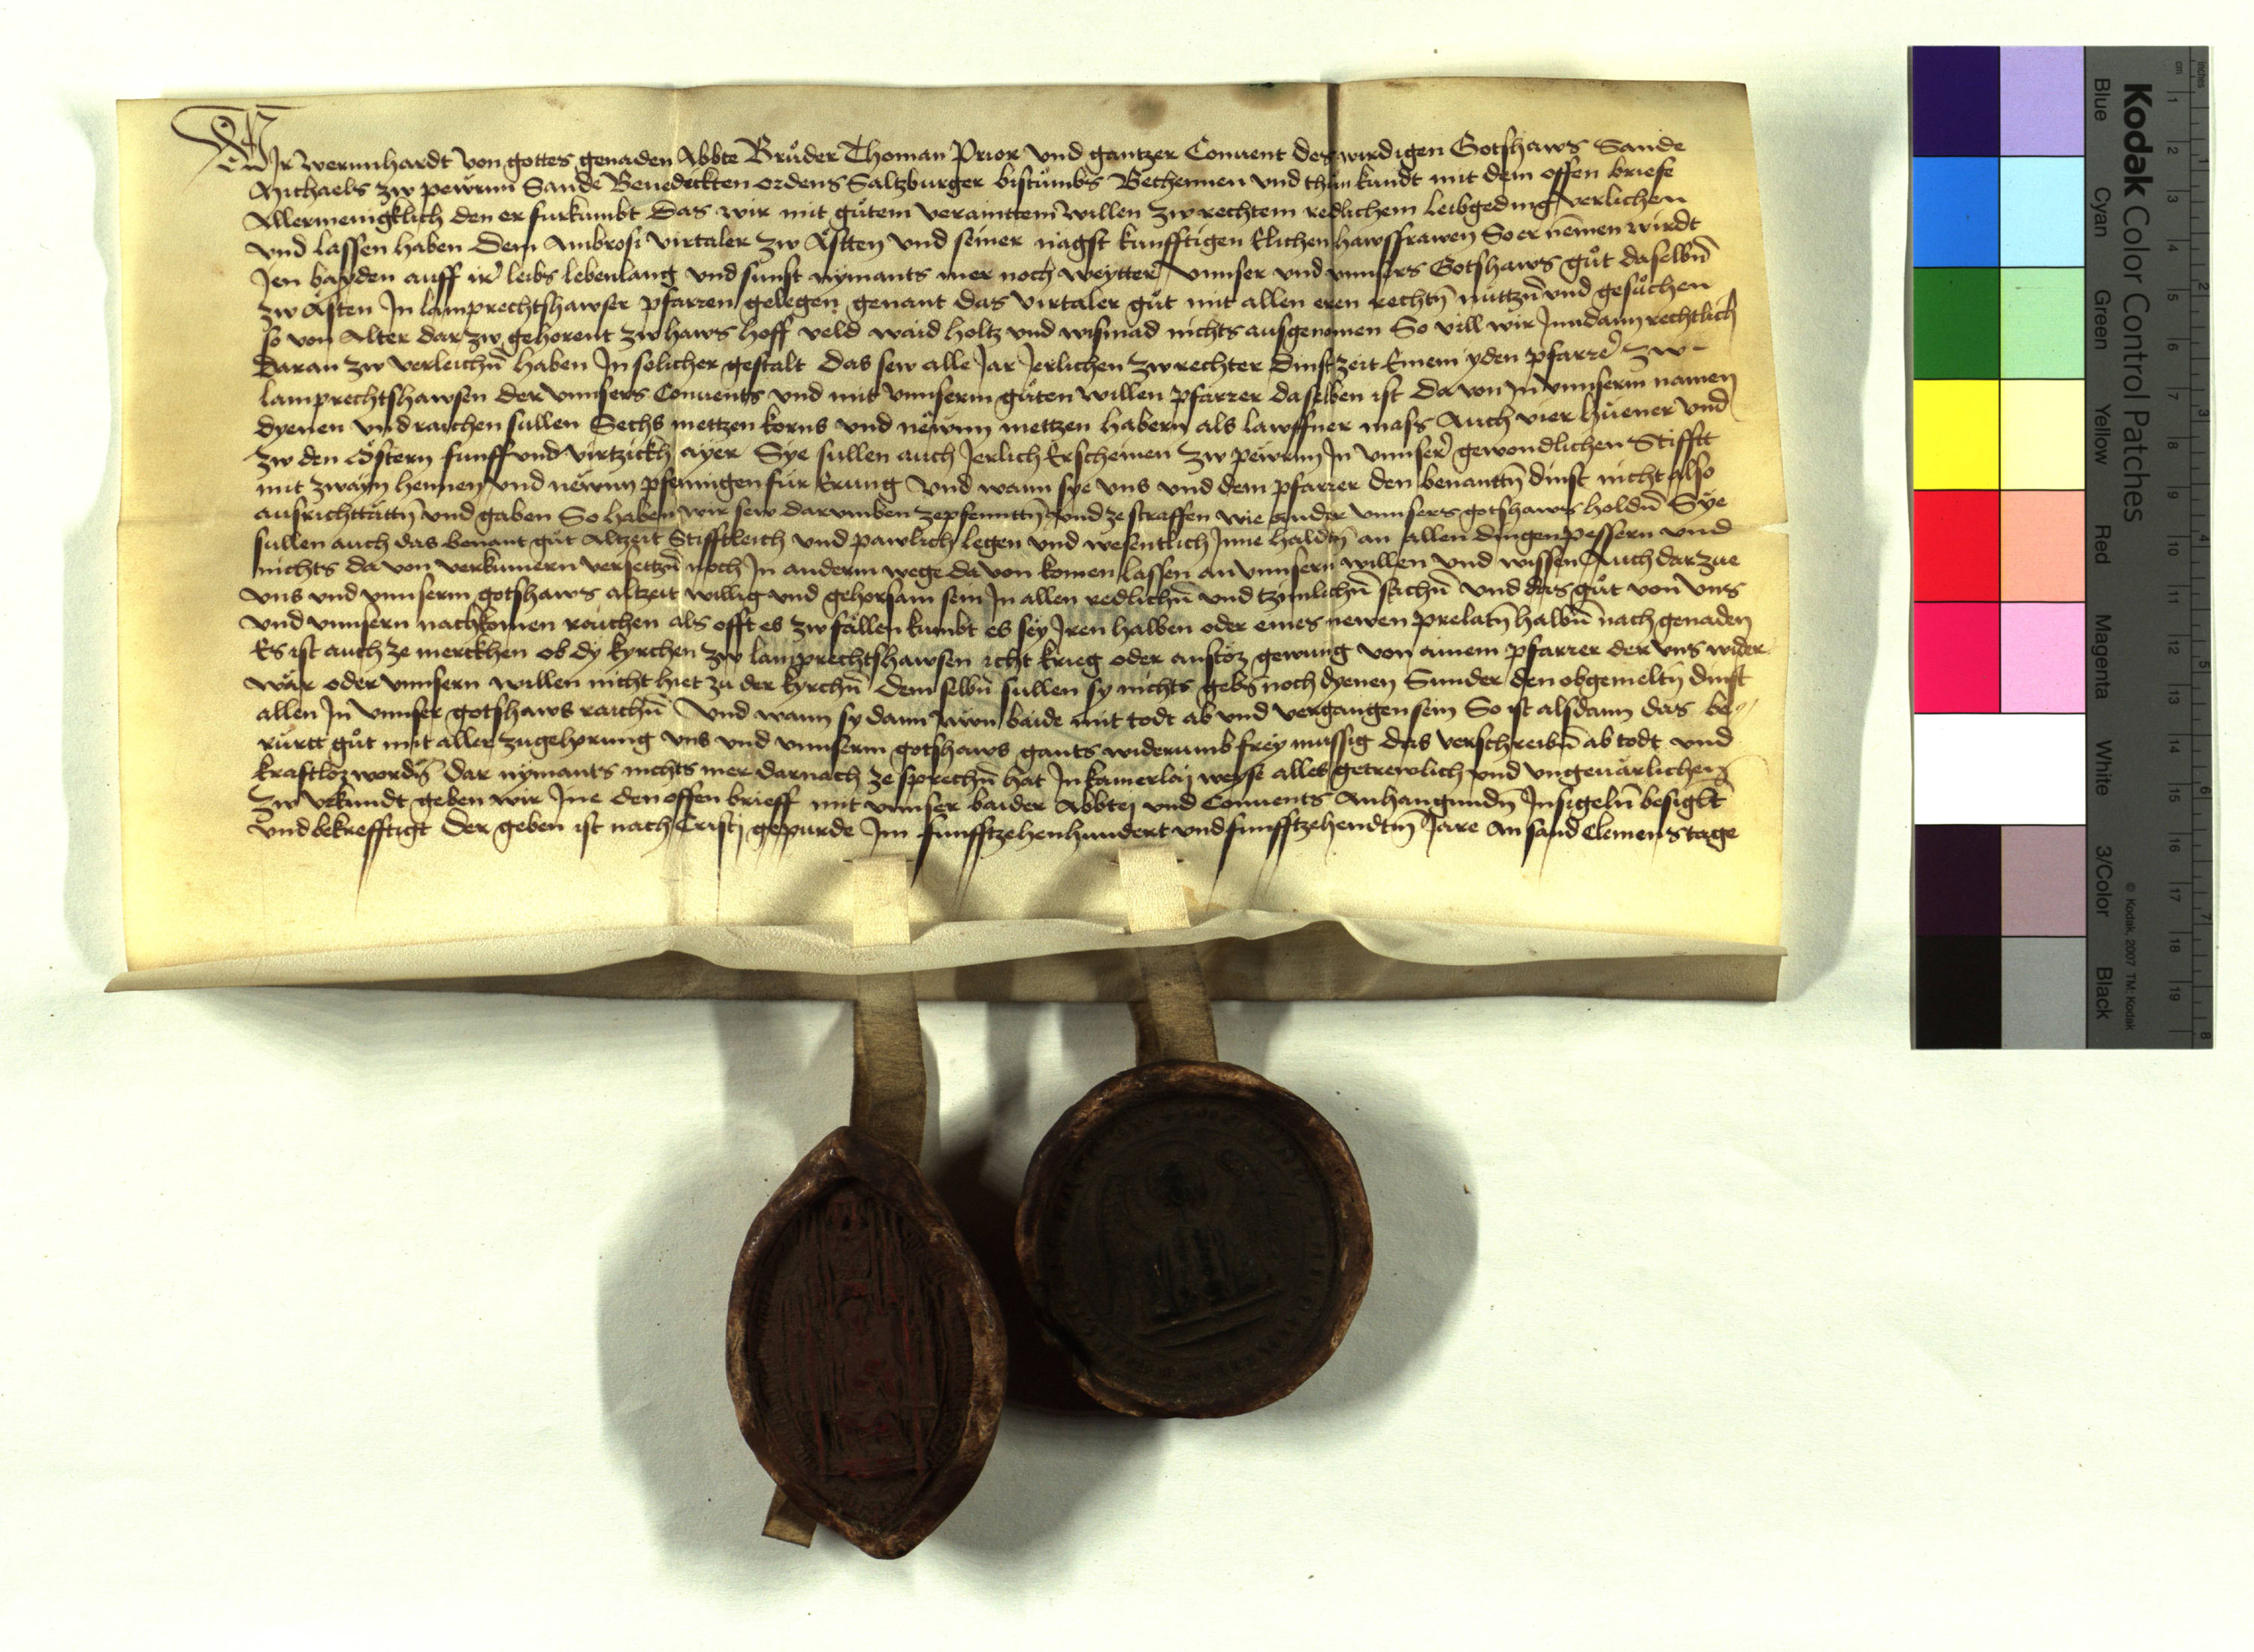 Wir Wernnhardt von gottes genaden Abbte Brůder Thoman Prior Vnd gantzer Conuent des wirdigen Gotshaws Sande
Michaels zw pewrnn Sande Benedickten ordens Saltzburger bistumbs Bekhennen vnd thun kundt mit dem offen briefe
Allermenigklich den er furkumbt Das wir mit gůtem veraintem willen zw rechtem redlichem leibgeding verlichen
vnd lassen haben Dem Ambrosi Virtaler zw Ästten vnd seiner nagst kunfftigen Elichen hawsfrawen So er nemen wirdt
Jen bayden auff ir leibs lebenlang vnd sunst nymants mer noch weytter Vnnser vnd vnnsers Gotshaws gůt daselbn̄
zw Ästen In lamprechtshawser pfarren gelegen genant das virtaler gůt mit allen eren rechtn̄ nuttzn̄ vnd gesůchen
so von Alter dar zw gehorent zw haws hoff veld waid holtz vnd wismad nichts ausgenomen So vill wir Inndann rechtlich
daran zw verleichn̄ haben In solicher gestalt das sew alle Jar Jerlichen zw rechter dinstzeit Einem yden pfarrer zw
lamprechtshawsen der vnnsers Conuents vnd mit vnnserm gůten willen pfarrer daselben ist da von In vnnserm namen
dyenen vnd raichen sullen Sechs mettzen korns vnd newnn mettzen habern als lawffner mass Auch vier huener vnd
zw den Ostern funff vnd virtzickh ayer Sye sullen auch Jerlich Erscheinen zw pewrnn In vnnser gewondlichen Stifftt
mit zwayn hennen vnd newnn pfenningen fur Erung Vnd wann sye vns vnd dem pfarrer den benanttn̄ dinst nicht also
ausrichttättn̄ vnd gaben So haben wir sew darumben zepfenntn̄ vnd ze straffen wie ander vnnsers gotshaws holdn̄ Sye
sullen auch das benant gůt Altzeit Stifftleich vnd pawlich legen vnd wesentlich Inne haldn̄ an allen dingen pessern vnd
nichts da von verkumern versettzn̄ noch In anderm wege da von komen lassen an vnnsern willen vnd wissen Auch dar zue
vns vnd vnnserm gotshaws altzeit willig vnd gehorsam sein In allen redlichn̄ vnd tzimlichn̄ sachn̄ Vnd das gůt von vns
vnd vnnsern nachkomen raichen als offt es zw fällen kumbt es sey Jren halben oder eines newen prelatn̄ halbn̄ nach genaden
Es ist auch ze merckhen ob dy kyrchen zw lamprechtshawsen icht krieg oder anstoz gewung von ainem pfarrer der vns wider
wär oder vnnsern willen nicht hiet zu der kyrchn̄ Dem selbn̄ sullen sy nichts gebn̄ noch dyenen Sunder den obgemeltn̄ dinst
allen In vnnser gotshaws raichn̄ Vnd wann sy dann nwn baide mit todt ab vnd vergangen sein So ist alsdann das be„
rurtt gůt mit aller zugehorung vns vnd vnnserm gotshaws gants widerumb frey mussig das verschreibn̄ ab todt vnd
kraftloz wordn̄ Dar nymants nichts mer darnach ze sprechn̄ hat In kainerlay weyse alles getrewlich vnd vngeuärlichen
Zw vrkundt geben wir Jne den offen brieff mit vnnser baider Abbtej vnd Conuents Anhangundn̄ Insigeln̄ besiglt
vnd bekrefftigt Der geben ist nach Cristj gepurde Im funfftzehenhundert vnd funfftzehendtn̄ Jare An sand Clemens tage
Kodak Color Control Patches
Blue Cyan Green Yellow Red Magenta White 3/Color Black
© Kodak, 2007 TM: Kodak
cm 1 2 3 4 5 6 7 8 9 10 11 12 13 14 15 16 17 18 19
inches 1 2 3 4 5 6 7 8